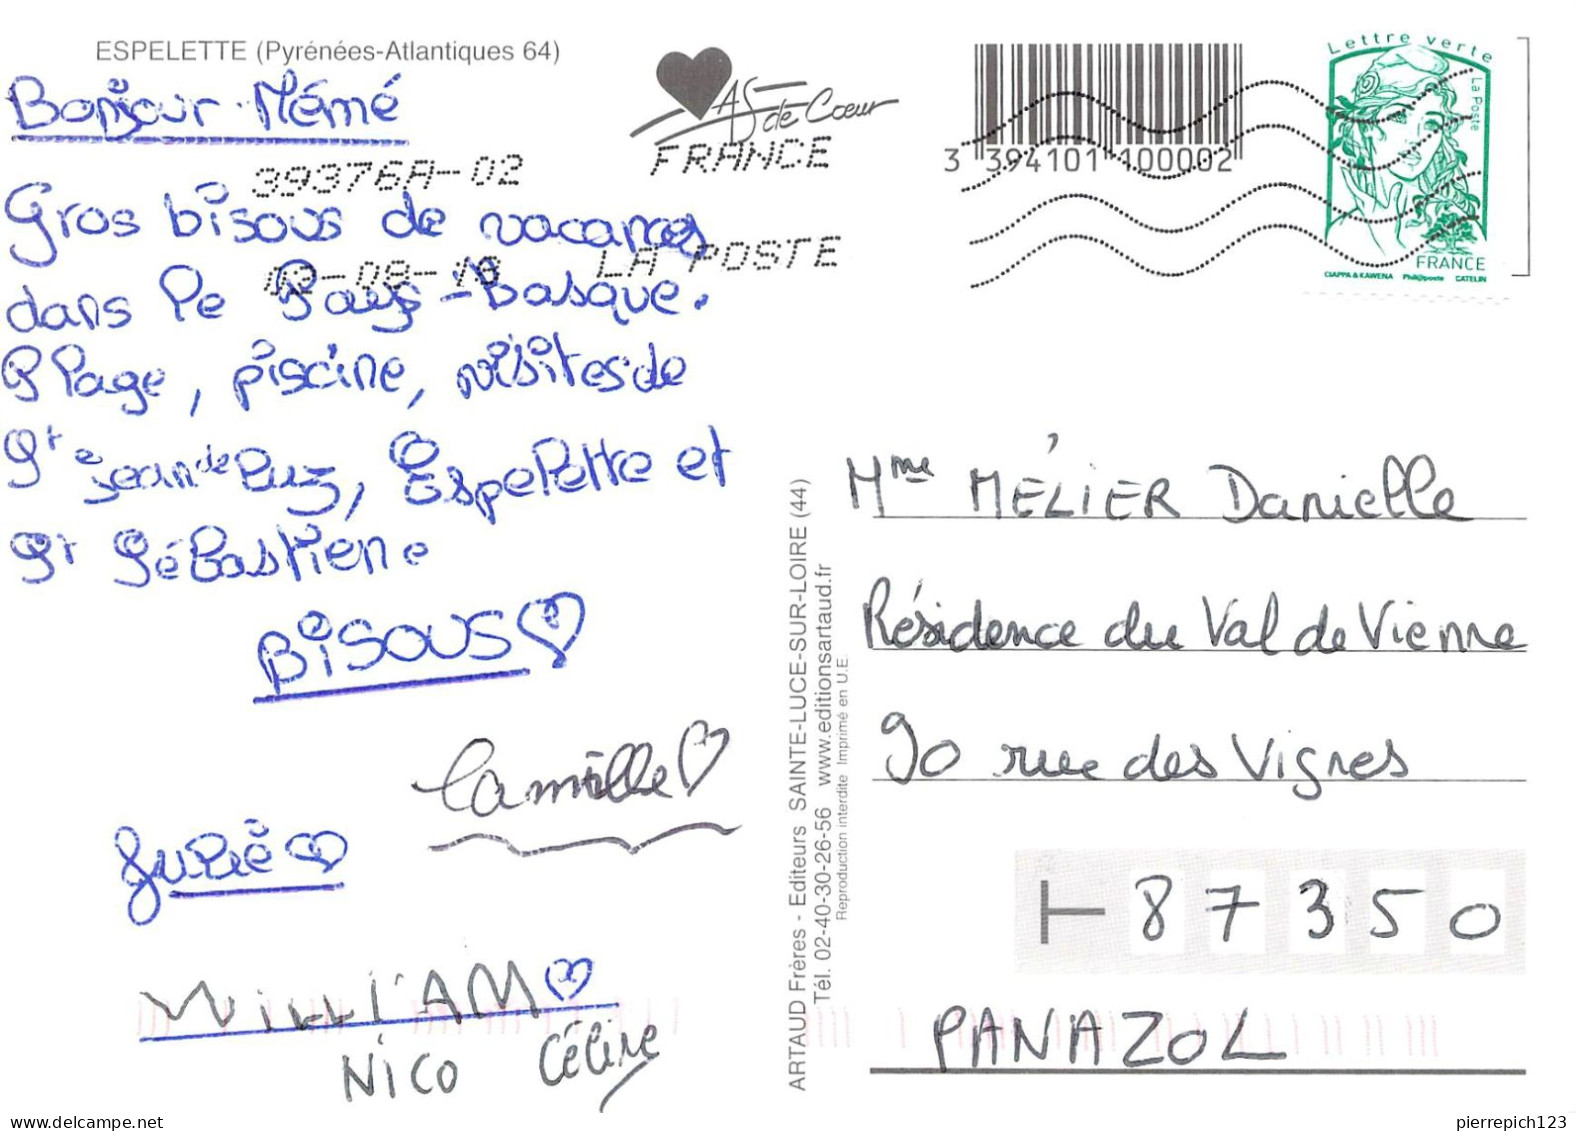 ESPELETTE (Pyrénées-Atlantiques 64)
Bonjour Mémé
Gros bisous de vacances
dans le Pays-Basque.
Plage, piscine, visites de
St Jean de Luz, Espelette et
St Sébastiene
BISOUS
Camille
Julie
WILLIAM
NICO Céline
39376A-02
03-08-16
AS de Cœur
FRANCE
LA POSTE
3 394101 100002
Lettre verte
La Poste
FRANCE
CIAPPA & KAWENA Phil@poste CATELIN
ARTAUD Frères - Editeurs SAINTE-LUCE-SUR-LOIRE (44)
Tél. 02-40-30-26-56 www.editionsartaud.fr
Reproduction interdite Imprimé en U.E.
Mme MÉLIER Danielle
Résidence du Val de Vienne
90 rue des Vignes
87350
PANAZOL
pierrepich123